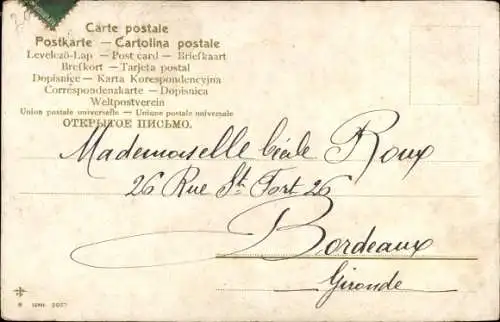 Carte postale
Postkarte — Cartolina postale
Levelező-Lap — Post card — Briefkaart
Brefkort — Tarjeta postal
Dopisnice — Karta Korespondencyjna
Correspondenzkarte — Dopisnica
Weltpostverein
Union postale universelle — Unione postale universale
ОТКРЫТОЕ ПИСЬМО.
Mademoiselle Roux
26 Rue St. Fort 26
Bordeaux
Gironde